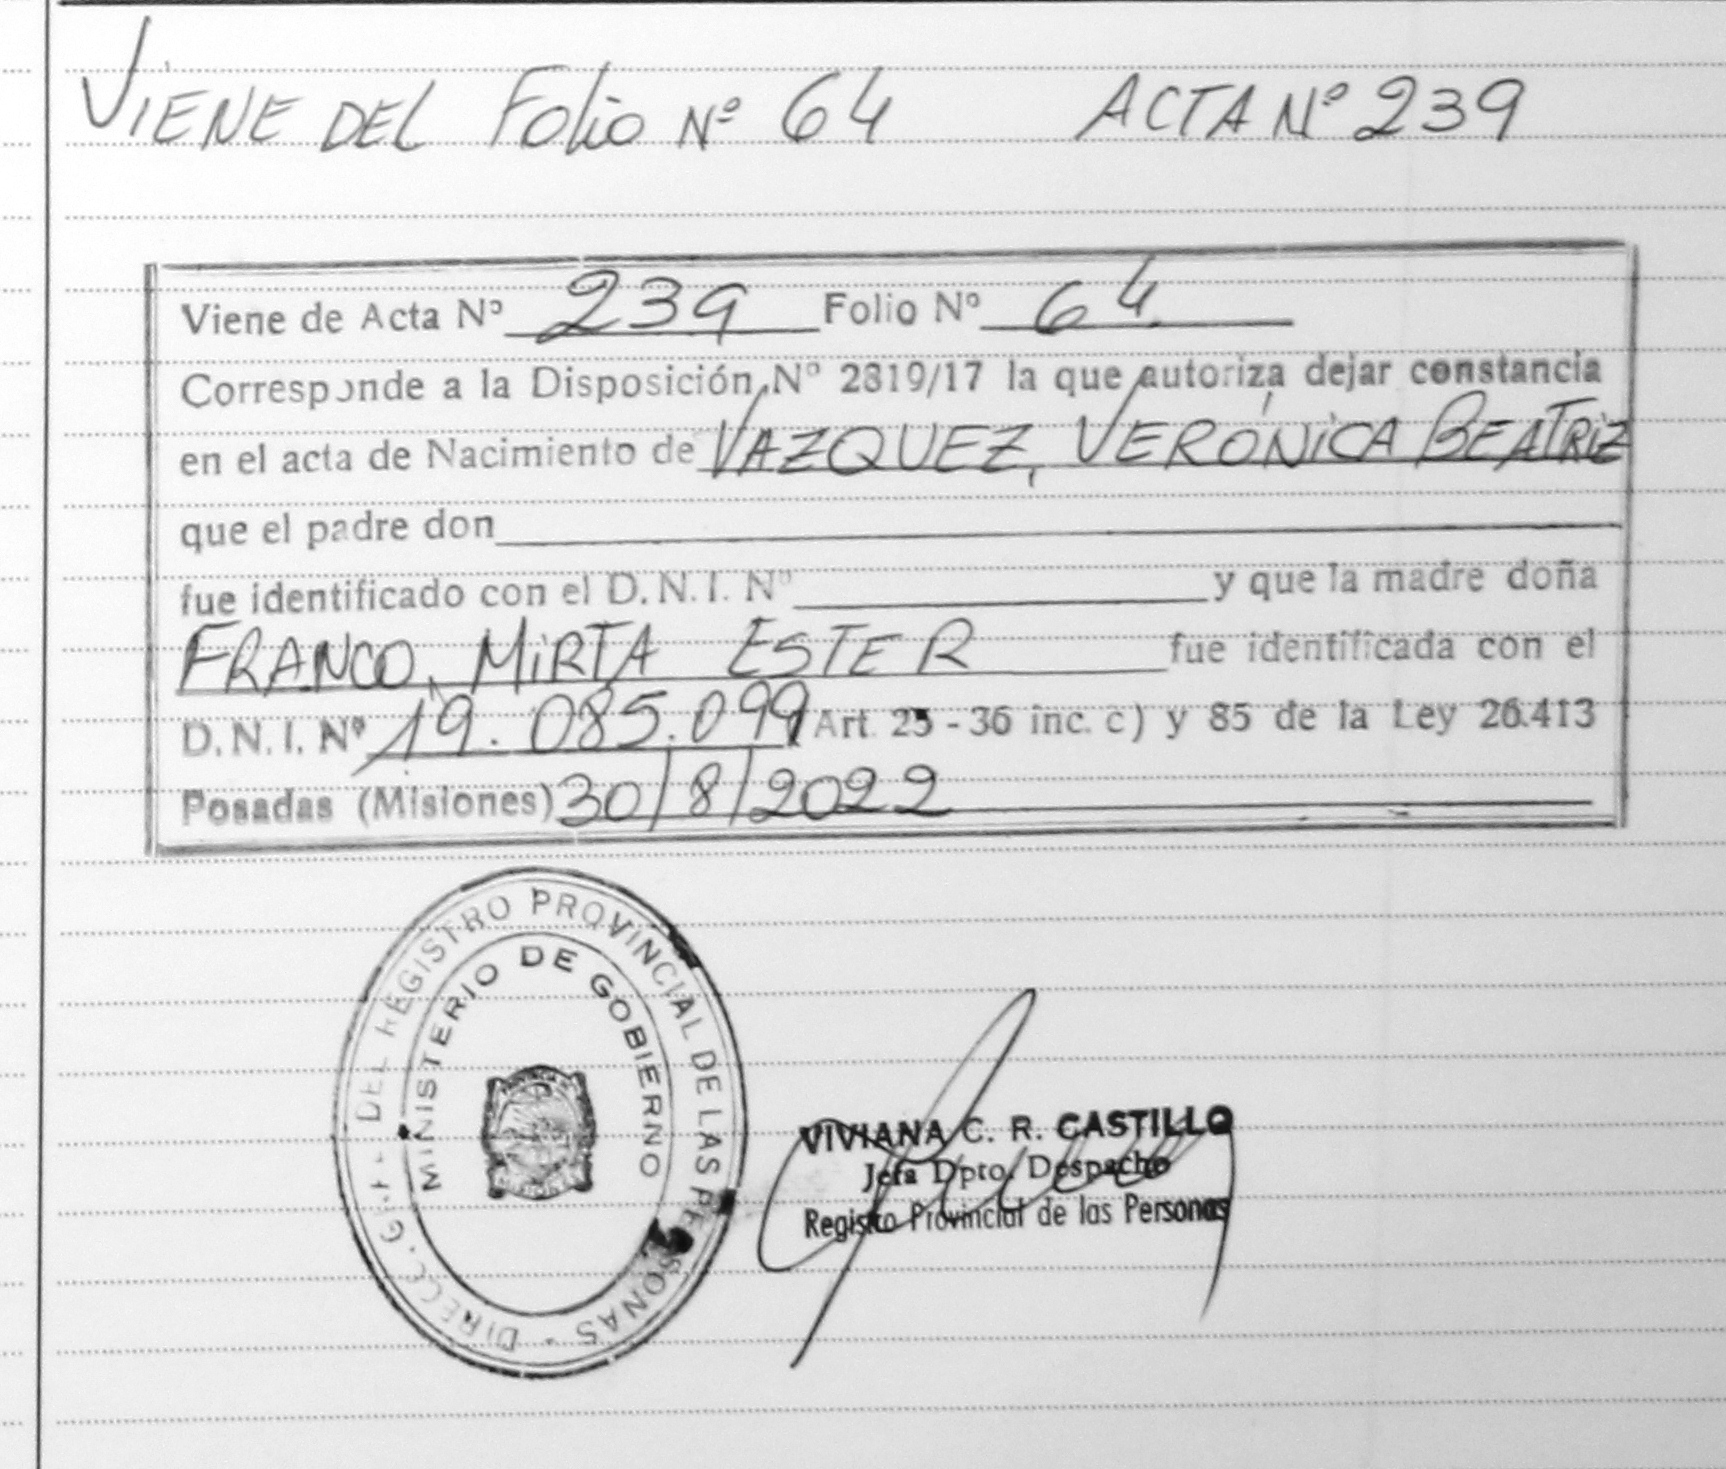 VIENE DEL FOLIO Nº 64 ACTA Nº 239
Viene de Acta Nº 239 Folio Nº 64
Corresponde a la Disposición Nº 2819/17 la que autoriza dejar constancia
en el acta de Nacimiento de VAZQUEZ, VERÓNICA BEATRIZ
que el padre don
fue identificado con el D.N.I. Nº y que la madre doña
FRANCO, MIRTA ESTER fue identificada con el
D.N.I. Nº 19.085.099 Art. 25 - 36 inc. c) y 85 de la Ley 26.413
Posadas (Misiones) 30/8/2022
DIRECC. GRAL. DEL REGISTRO PROVINCIAL DE LAS PERSONAS -
MINISTERIO DE GOBIERNO
VIVIANA C. R. CASTILLO
Jefa Dpto. Despacho
Registro Provincial de las Personas